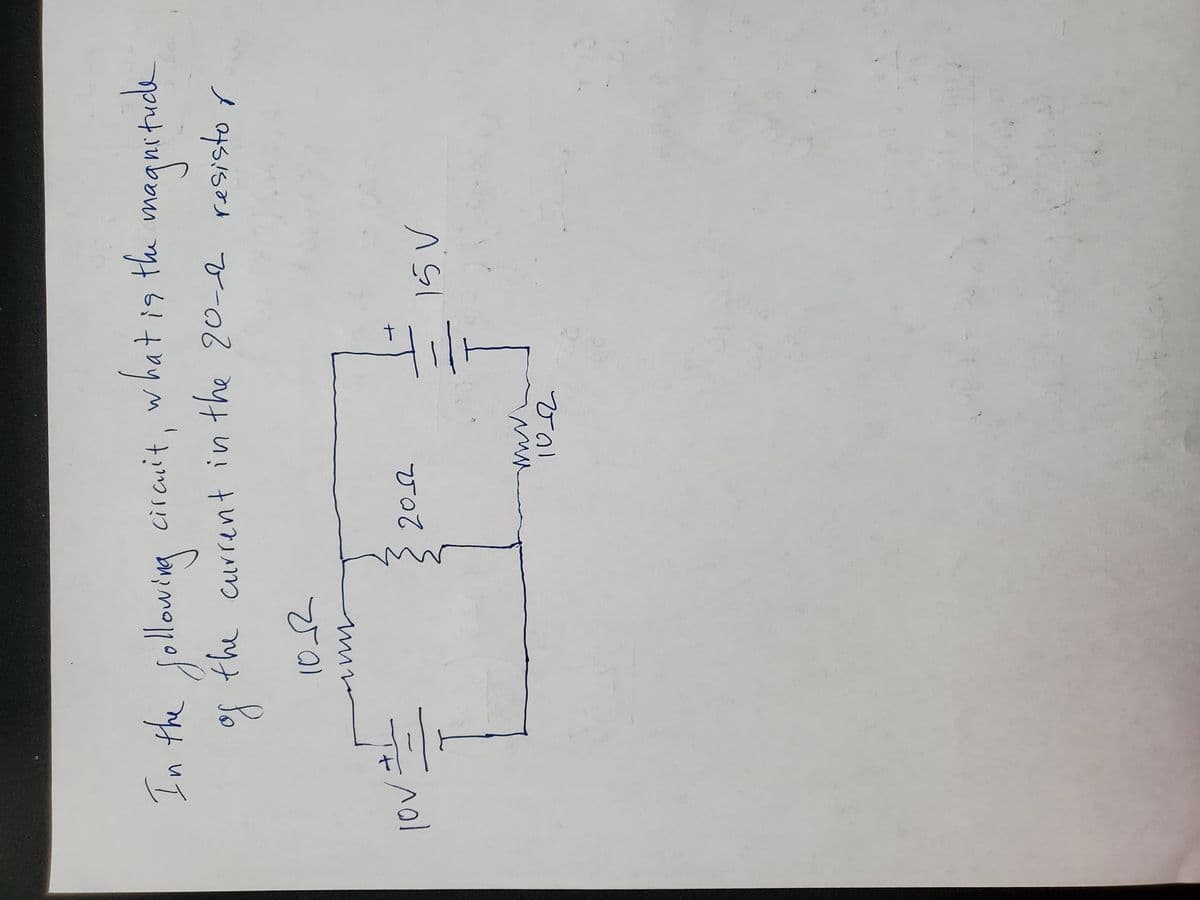 In the following circuit, what is the magnitude
of the current in the 20-Ω resistor
10Ω
10V + 20Ω + 15V
10Ω